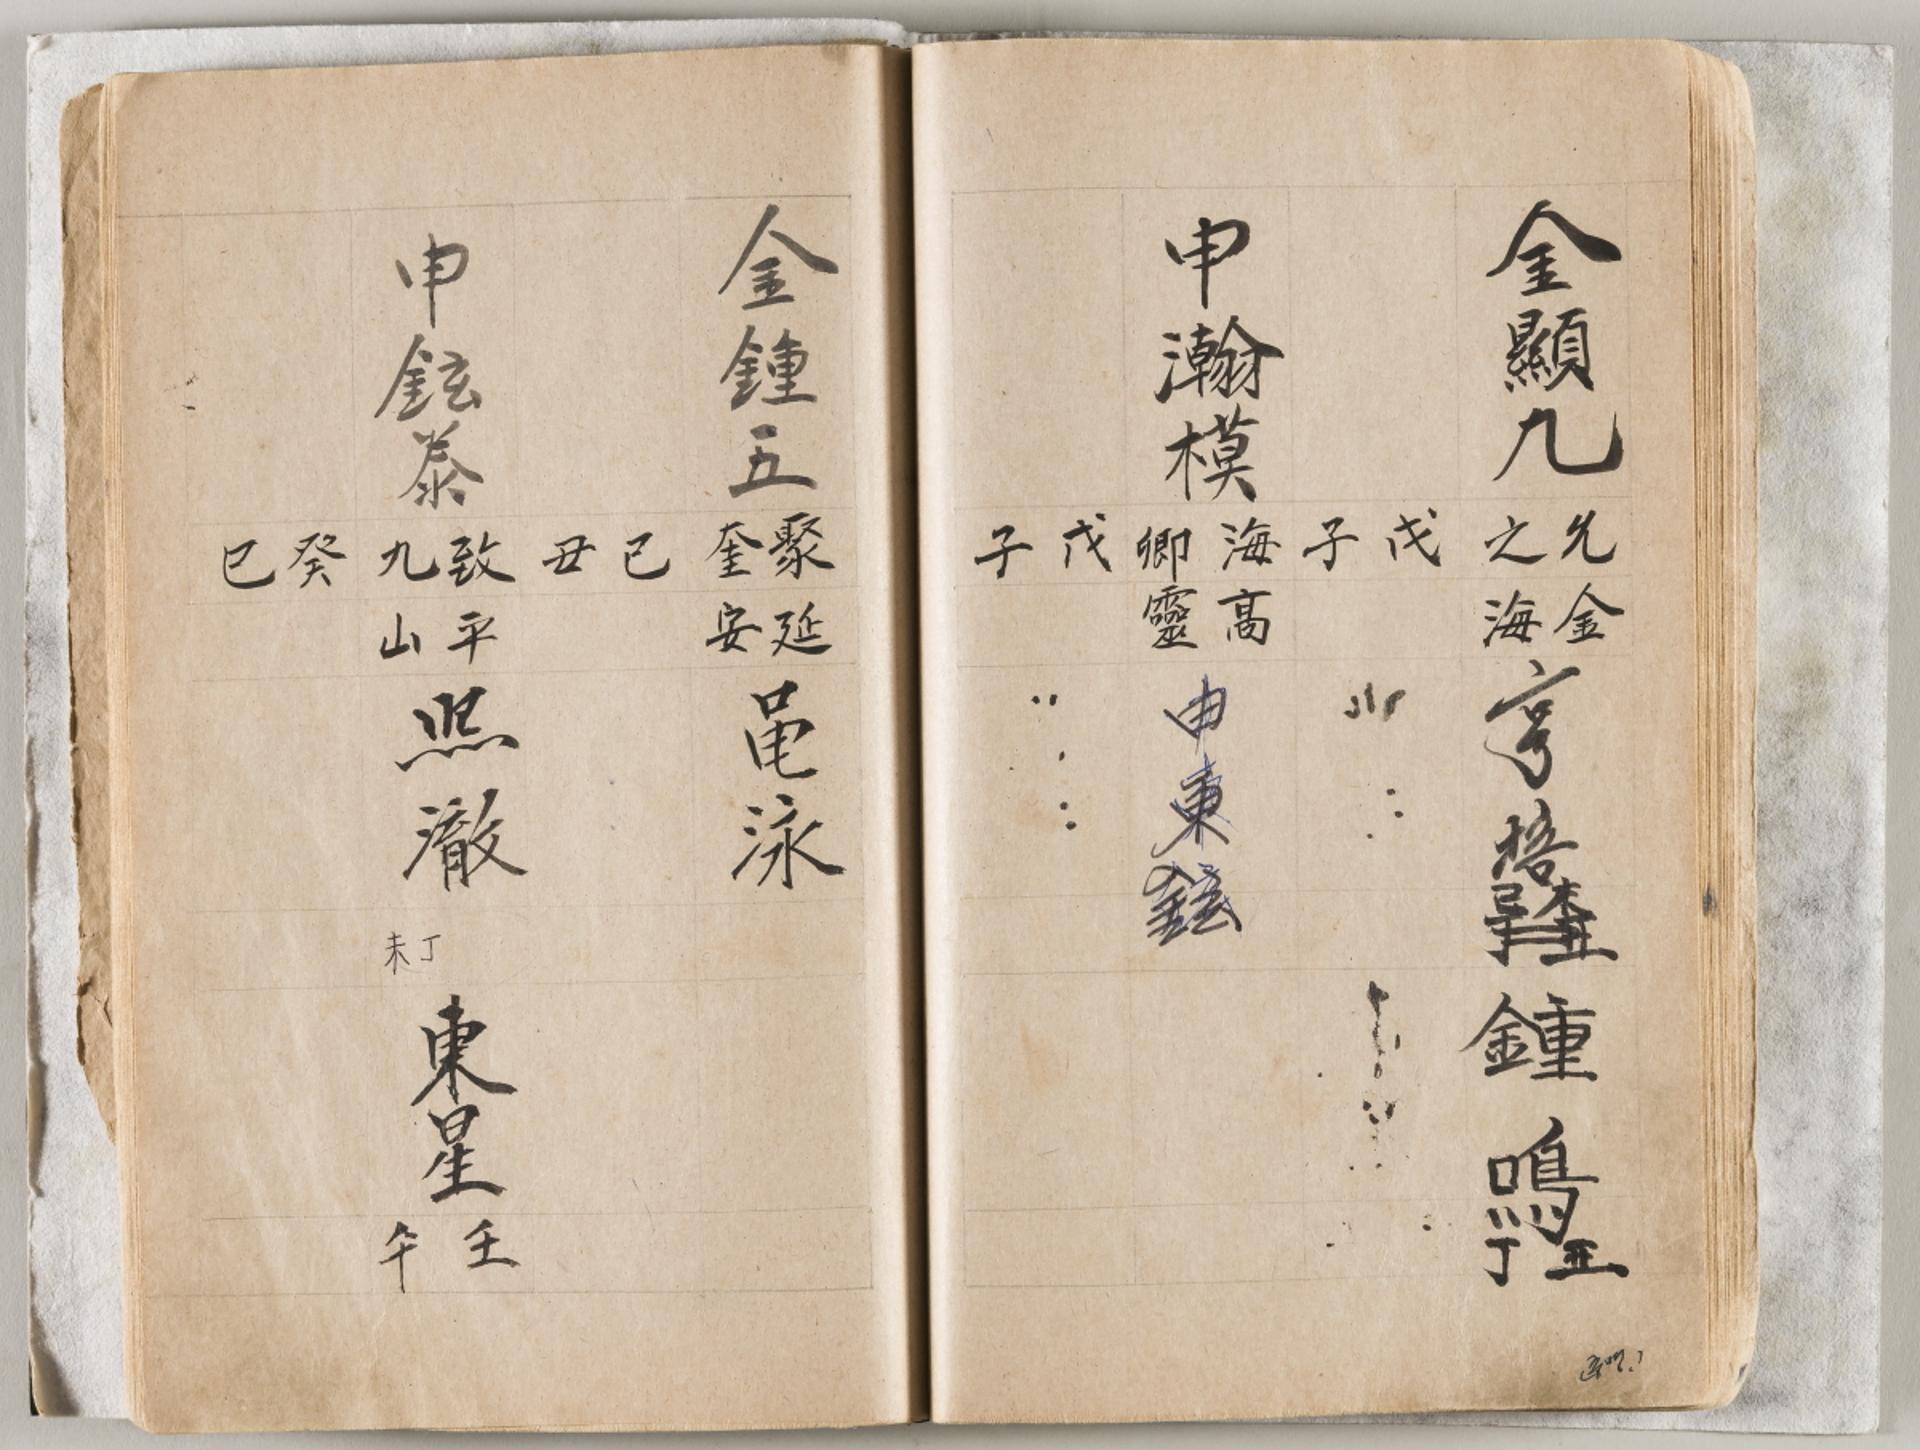 金顯九
允之
金海
亨
梧
鍾
鳴
戊子
申瀚模
海卿
高靈
申東鉉
戊子
金鍾五
聚奎
延安
黽泳
己丑
申鉉泰
致九
平山
熙澈
丁未
東星
壬午
癸巳